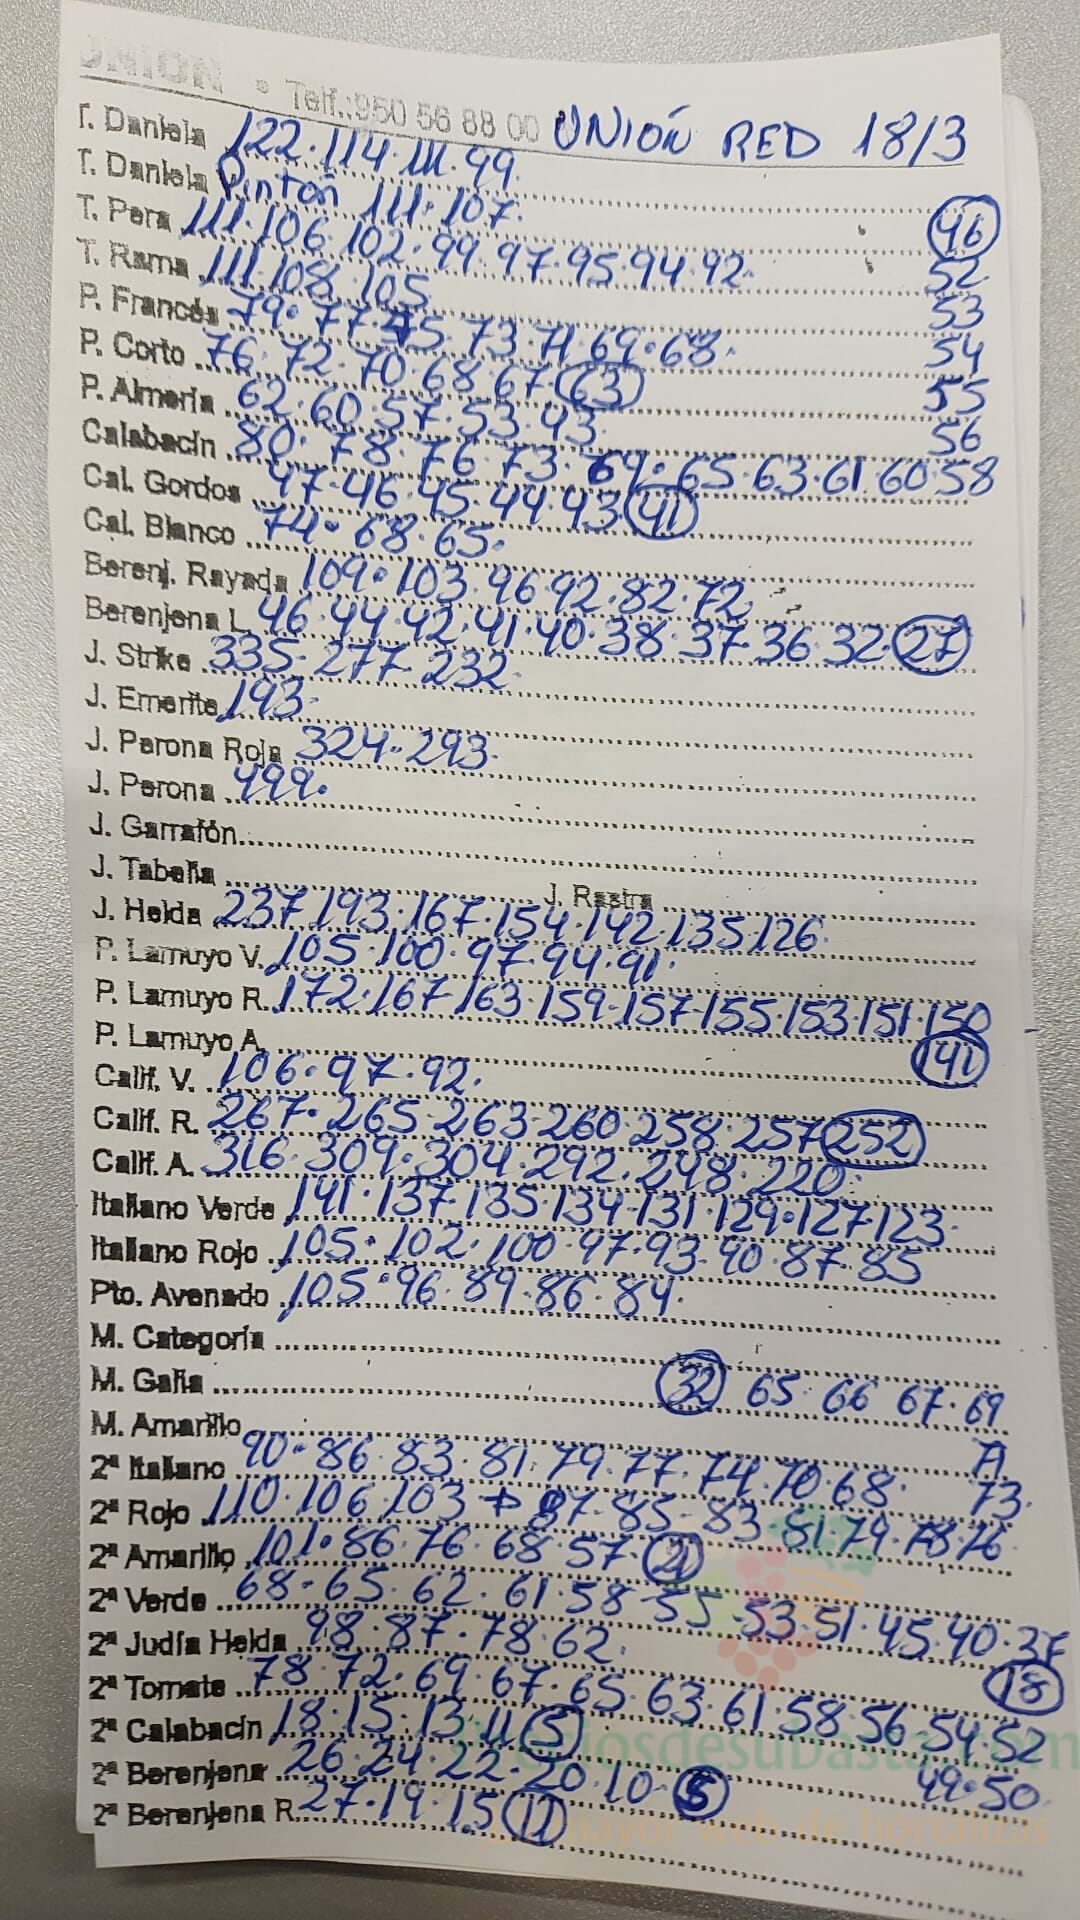 UNION • Telf.:950 56 88 00 UNIÓN RED 18/3
T. Daniela 122.114.111.99.
T. Daniela Pintón 111.107.
T. Pera 111.106.102.99.97.95.94.92. 46
T. Rama 111.108.105 52
P. Francés 79.77.75.73.71.69.68. 53
P. Corto 76.72.70.68.67.63 54
P. Almería 62.60.57.53.43. 55
56
Calabacín 80.78.76.73.69.65.63.61.60.58
Cal. Gordos 47.46.45.44.43.41
Cal. Blanco 74.68.65.
Berenj. Rayada 109.103.96.92.82.72
Berenjena L. 46.44.42.41.40.38.37.36.32.27
J. Strike 335.277.232.
J. Emerite 193.
J. Perona Roja 324.293.
J. Perona 499.
J. Garrafón
J. Tabella J. Rastra
J. Helda 237.193.167.154.142.135.126.
P. Lamuyo V. 105.100.97.94.91.
P. Lamuyo R. 172.167.163.159.157.155.153.151.150
P. Lamuyo A. 141
Calif. V. 106.97.92.
Calif. R. 267.265.263.260.258.257.252
Calif. A. 316.309.304.292.248.220.
Italiano Verde 141.137.135.134.131.129.127.123.
Italiano Rojo 105.102.100.97.93.90.87.85
Pto. Avenado 105.96.89.86.84.
M. Categoría
M. Galia 32 65.66.67.69
M. Amarillo 71
2ª Italiano 90.86.83.81.79.77.74.70.68. 73.
2ª Rojo 110.106.103 87.85.83.81.79.78.76
2ª Amarillo 101.86.76.68.57.21
2ª Verde 68.65.62.61.58.55.53.51.45.40.37
2ª Judía Helda 98.87.78.62. 18
2ª Tomate 78.72.69.67.65.63.61.58.56.54.52
2ª Calabacín 18.15.13.11.5 49.50.
2ª Berenjena 26.24.22.20.10.5
2ª Berenjena R. 27.19.15.11
preciosdesubasta.com
la mayor web de hortalizas